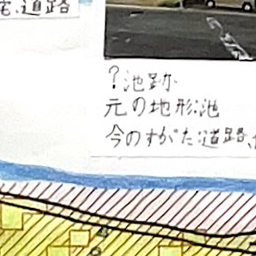 宅、道路
?池跡
元の地形:池
今のすがた:道路、